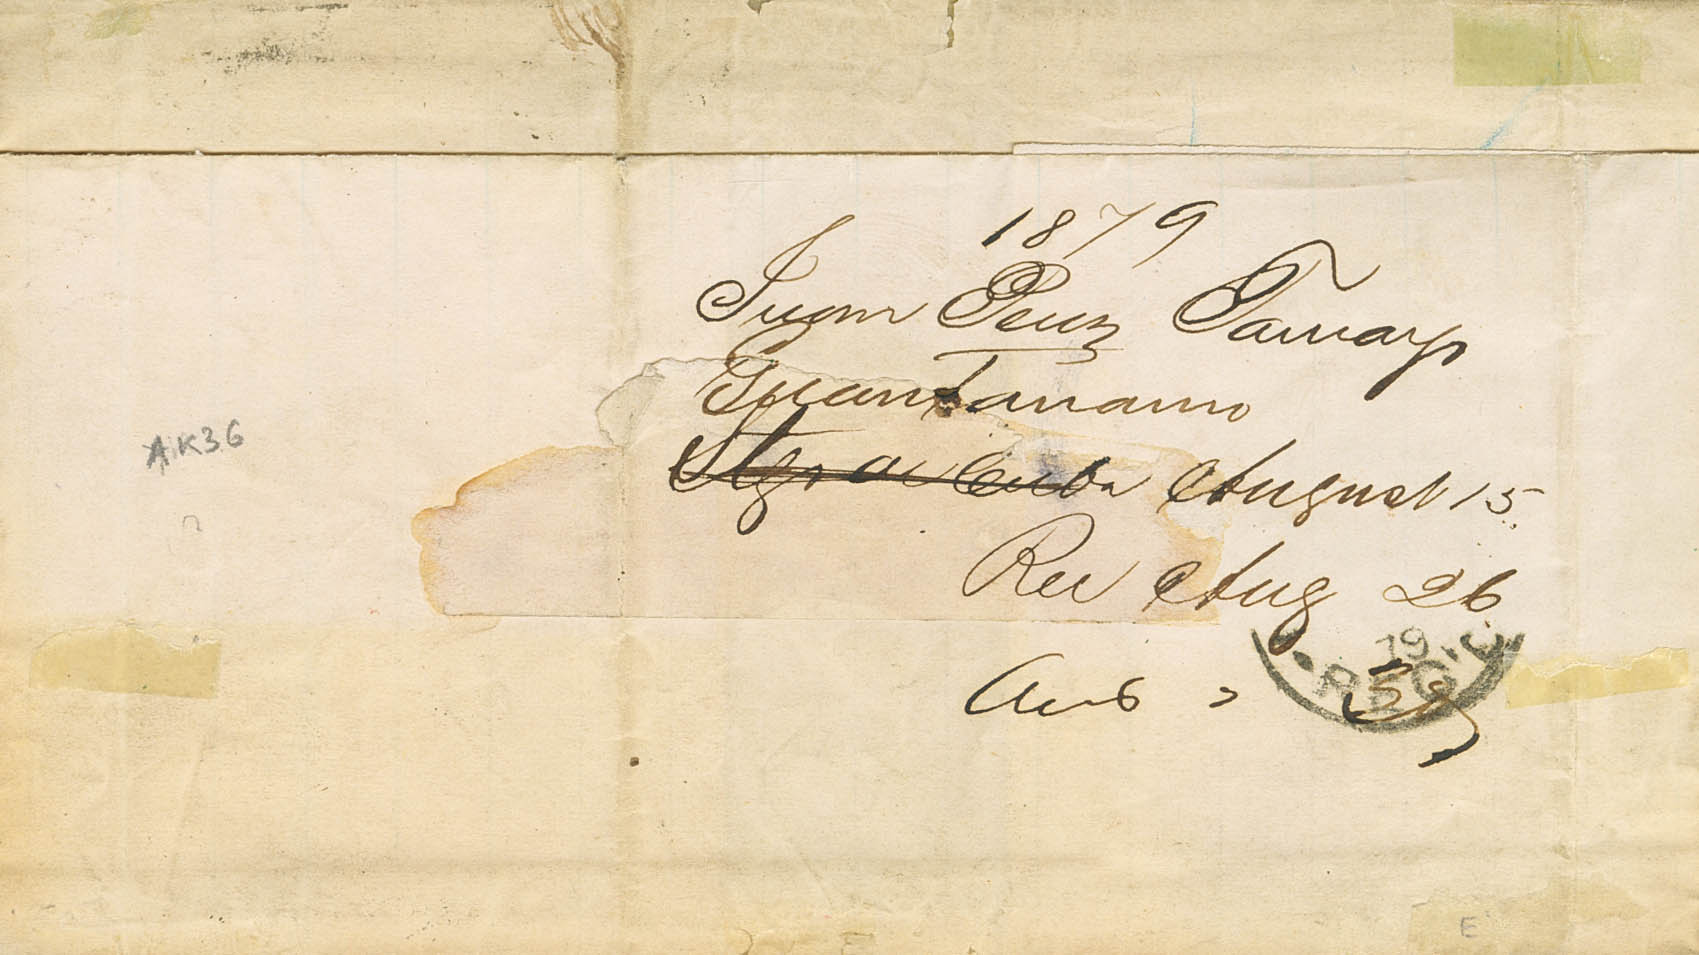 1879
Juan Perez Tamayo
Guantanamo
Stgo de Cuba August 15
Rec Aug 26
Ans
79
AK36
E